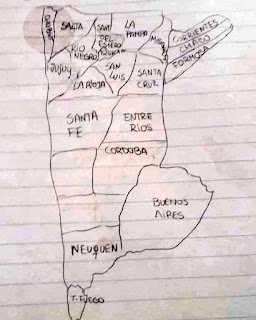 LA
PAMPA
CORRIENTES
CHACO
FORMOSA
DEL
ESTERO
RIO
NEGRO
JUJUY
LA RIOJA
SAN
LUIS
SANTA
CRUZ
SANTA
FE
ENTRE
RÍOS
CORDOBA
BUENOS
AIRES
NEUQUEN
T. FUEGO